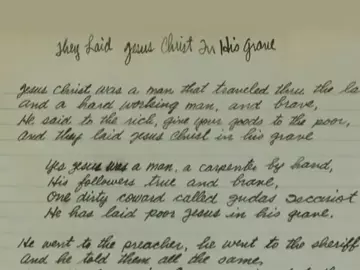 They Laid Jesus Christ In His Grave
Jesus Christ, was a man that traveled thru the la
And a hard working man, and brave,
He said to the rich, give your goods to the poor,
And they laid Jesus Christ in his grave
Yes Jesus was a man, a carpenter by hand,
His followers true and brave,
One dirty coward called Judas Iscariot
He has laid poor Jesus in his grave.
He went to the preacher, he went to the sheriff
And he told them all the same,